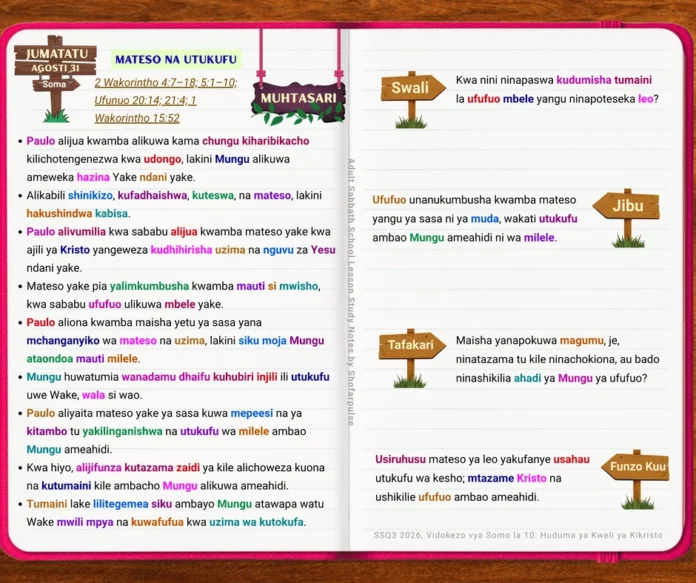 JUMATATU
AGOSTI 31
Soma
MATESO NA UTUKUFU
2 Wakorintho 4:7–18; 5:1–10;
Ufunuo 20:14; 21:4; 1
Wakorintho 15:52
MUHTASARI
• Paulo alijua kwamba alikuwa kama chungu kiharibikacho
kilichotengenezwa kwa udongo, lakini Mungu alikuwa
ameweka hazina Yake ndani yake.
• Alikabili shinikizo, kufadhaishwa, kuteswa, na mateso, lakini
hakushindwa kabisa.
• Paulo alivumilia kwa sababu alijua kwamba mateso yake kwa
ajili ya Kristo yangeweza kudhihirisha uzima na nguvu za Yesu
ndani yake.
• Mateso yake pia yalimkumbusha kwamba mauti si mwisho,
kwa sababu ufufuo ulikuwa mbele yake.
• Paulo aliona kwamba maisha yetu ya sasa yana
mchanganyiko wa mateso na uzima, lakini siku moja Mungu
ataondoa mauti milele.
• Mungu huwatumia wanadamu dhaifu kuhubiri injili ili utukufu
uwe Wake, wala si wao.
• Paulo aliyaita mateso yake ya sasa kuwa mepeesi na ya
kitambo tu yakilinganishwa na utukufu wa milele ambao
Mungu ameahidi.
• Kwa hiyo, alijifunza kutazama zaidi ya kile alichoweza kuona
na kutumaini kile ambacho Mungu alikuwa ameahidi.
• Tumaini lake lilitegemea siku ambayo Mungu atawapa watu
Wake mwili mpya na kuwafufua kwa uzima wa kutokufa.
Adult Sabbath School Lesson Study Notes by Shofarpulse
Swali
Kwa nini ninapaswa kudumisha tumaini
la ufufuo mbele yangu ninapoteseka leo?
Ufufuo unanukumbusha kwamba mateso
yangu ya sasa ni ya muda, wakati utukufu
ambao Mungu ameahidi ni wa milele.
Jibu
Tafakari
Maisha yanapokuwa magumu, je,
ninatazama tu kile ninachokiona, au bado
ninashikilia ahadi ya Mungu ya ufufuo?
Usiruhusu mateso ya leo yakufanye usahau
utukufu wa kesho; mtazame Kristo na
ushikilie ufufuo ambao ameahidi.
Funzo Kuu
SSQ3 2026, Vidokezo vya Somo la 10: Huduma ya Kweli ya Kikristo